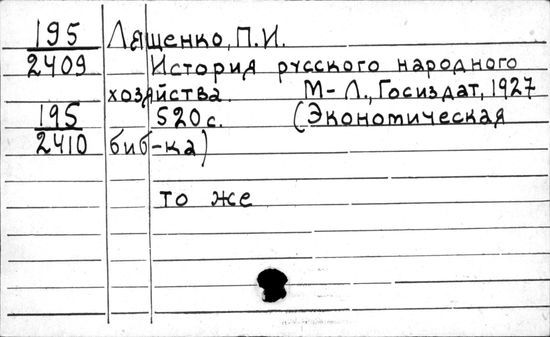 195 Лященко, П.И.
2409 История русского народного
хозяйства. М-Л., Госиздат, 1927
195 520 с. (Экономическая
2410 биб-ка)
то же